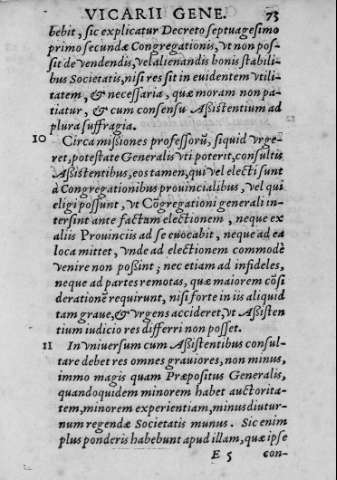 VICARII GENE. 73
bebit, sic explicatur Decreto septuagesimo
primo secundæ Congregationis, vt non pos-
sit de vendendis, vel alienandis bonis stabili-
bus Societatis, nisi res sit in euidentem vtili-
tatem, & necessaria, quæ moram non pa-
tiatur, & cum consensu Assistentium ad
plura suffragia.
10 Circa missiones professorū, siquid vrge-
ret, potestate Generalis vti poterit, consultis
Assistentibus, eos tamen, qui vel electi sunt
à Congregationibus prouincialibus, vel qui
eligi possunt, vt Cōgregationi generali in-
tersint ante factam electionem, neque ex
aliis Prouinciis ad se euocabit, neque ad ea
loca mittet, vnde ad electionem commodè
venire non possint; nec etiam ad infideles,
neque ad partes remotas, quæ maiorem cōsi
derationē requirunt, nisi forte in iis aliquid
tam graue, & vrgens accideret, vt Assisten
tium iudicio res differri non posset.
11 In vniuersum cum Assistentibus consul-
tare debet res omnes grauiores, non minus,
immo magis quam Præpositus Generalis,
quandoquidem minorem habet auctorita-
tem, minorem experientiam, minus diutur-
num regendæ Societatis munus. Sic enim
plus ponderis habebunt apud illam, quæ ipse
E 5 con-